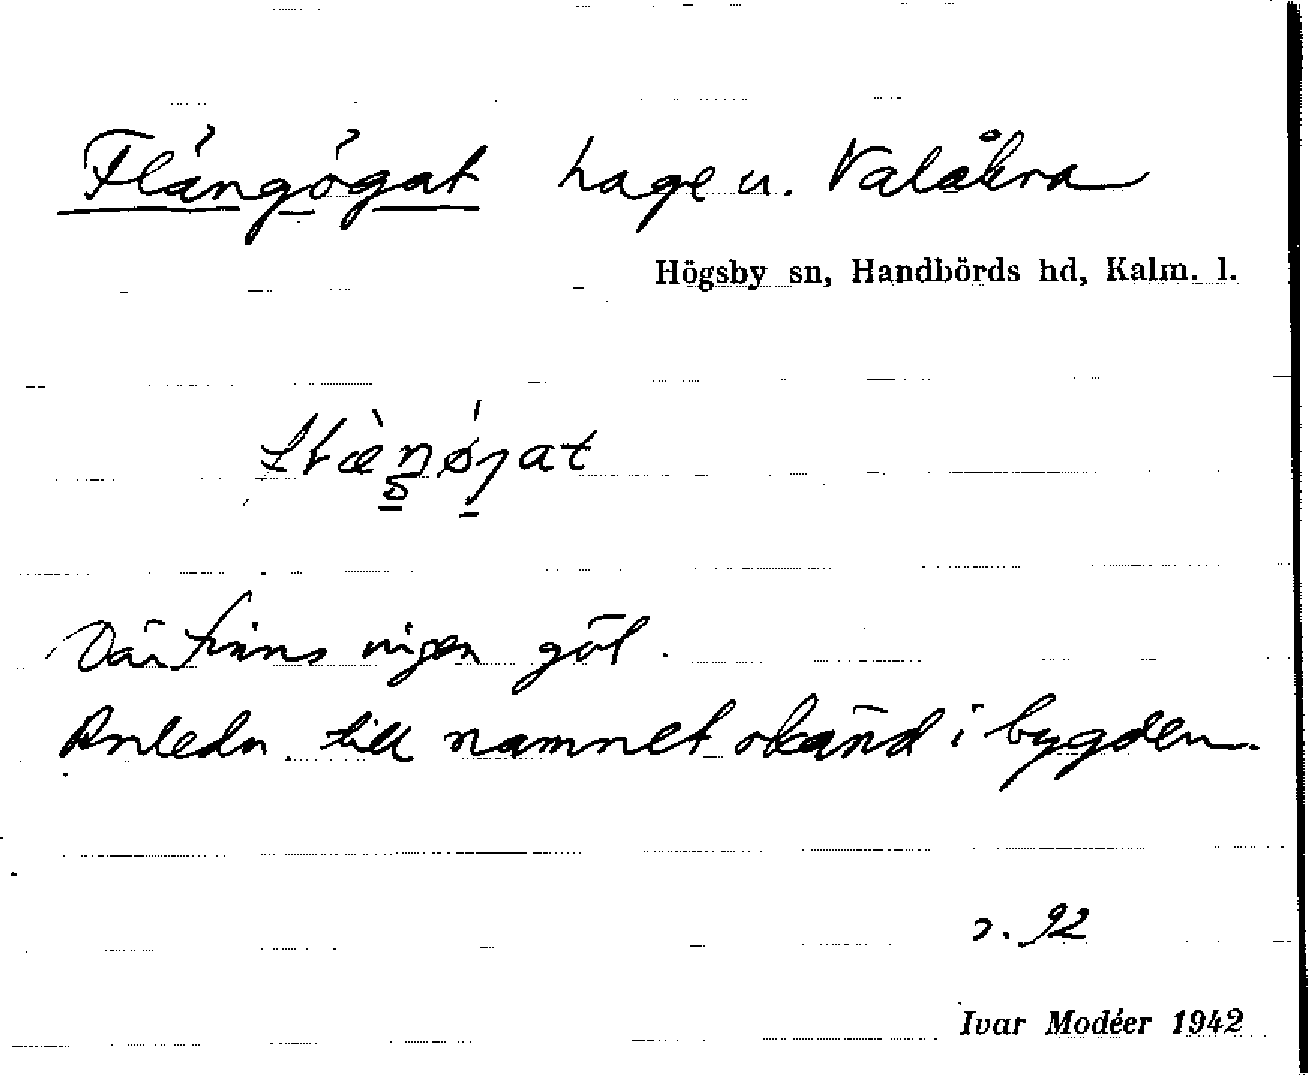 Flängögat hage u. Valåkra
Högsby sn, Handbörds hd, Kalm. l.
Där finns ingen göl.
Anledn. till namnet okänd i bygden.
s. 92
Ivar Modéer 1942